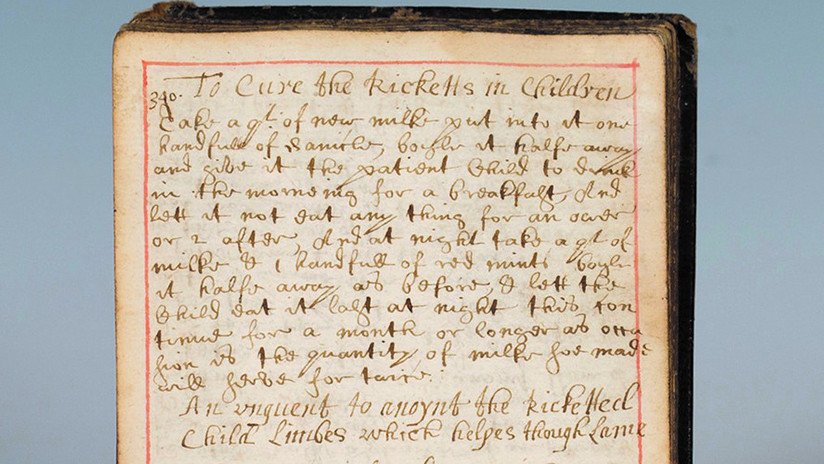 To Cure the Ricketts in Children
340.
Take a qt of new milke put into it one
handfull of Sanicle, boyle it halfe away
and give it the patient Child to drink
in the morneing for a breakfast, And
lett it not eat any thing for an ower
or 2 after, And at night take a qt of
milke & 1 handfull of red mints boyle
it halfe away as before & lett the
Child eat it last at night this con
tinue for a month or longer as occa
sion is the quantity of milke soe made
will serve for twice.
An vnguent to anoynt the Ricketted
Child Limbes which helpes though Lame